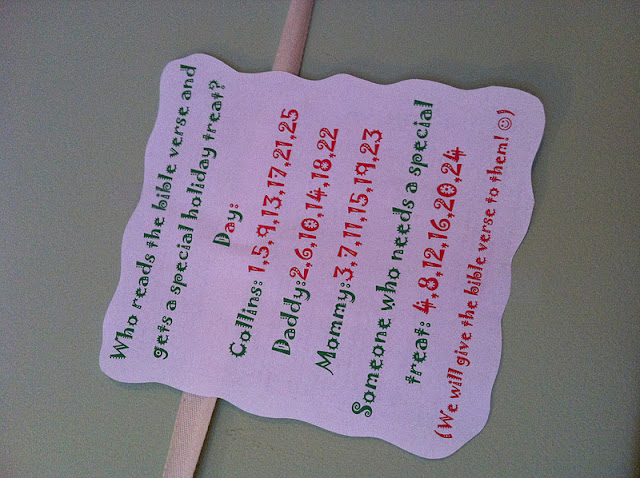 Who reads the bible verse and
gets a special holiday treat?
Day:
Collins: 1,5,9,13,17,21,25
Daddy:2,6,10,14,18,22
Mommy:3,7,11,15,19,23
Someone who needs a special
treat: 4,8,12,16,20,24
(We will give the bible verse to them! ☺)